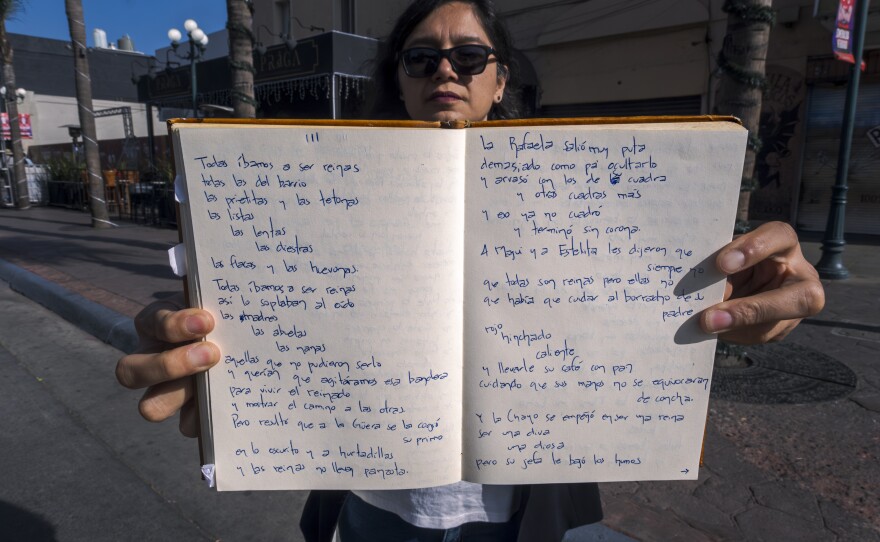 PRAGA
III
Todas íbamos a ser reinas
todas las del barrio
las prietitas y las tetonas
las listas
las lentas
las diestras
las flacas y las huevonas.
Todas íbamos a ser reinas
así lo soplaban al oído
las madres
las abuelas
las nanas
aquellas que no pudieron serlo
y querían que agitáramos esa bandera
para vivir el reinado
y mostrar el camino a las otras
Pero resultó que a la Güera se la cogió
su primo
en lo oscurito y a hurtadillas
y las reinas no llevan panzota.
La Rafaela salió muy puta
demasiado como pa' ocultarlo
y arrasó con los de la cuadra
y otras cuadras más
y eso ya no cuadró
y terminó sin corona.
A Magui y a Estelita les dijeron que
siempre no
que todas son reinas pero ellas no
que había que cuidar al borracho de su
padre
rojo
hinchado
caliente
y llevarle su café con pan
cuidando que sus manos no se equivocaran
de concha.
Y la Chayo se empeñó en ser una reina
ser una diva
una diosa
pero su jefa le bajó los humos
→